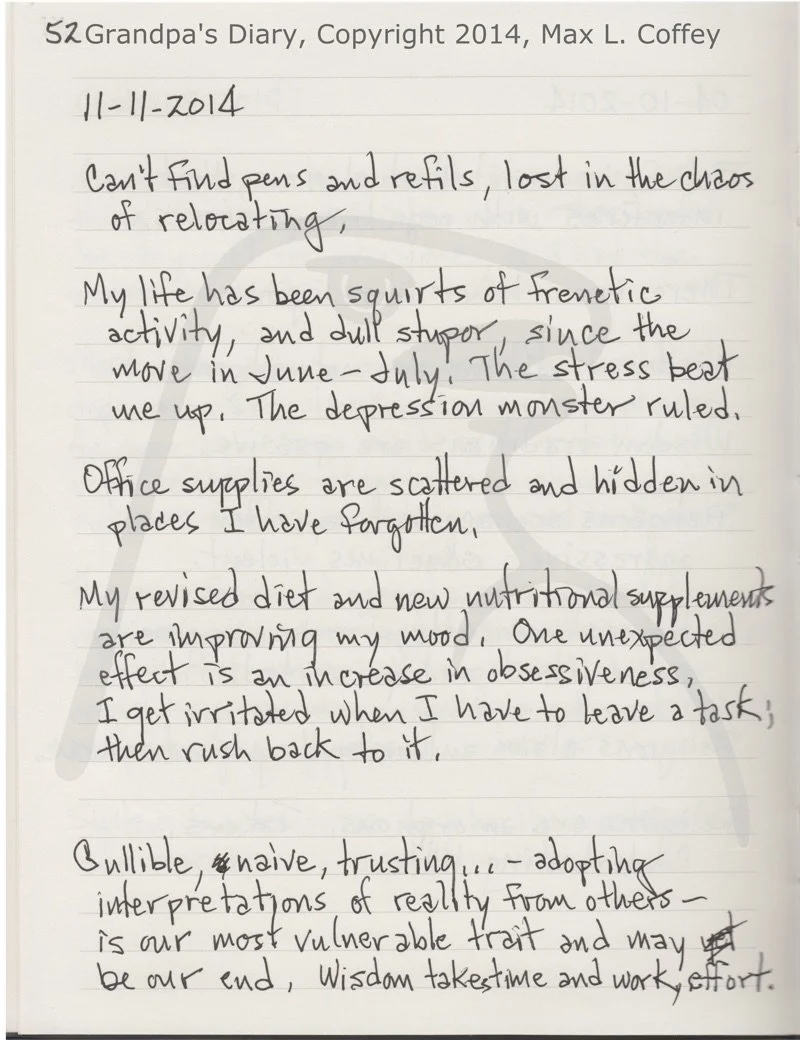 52 Grandpa's Diary, Copyright 2014, Max L. Coffey
11-11-2014
Can't find pens and refils, lost in the chaos
of relocating.
My life has been squirts of frenetic
activity, and dull stupor, since the
move in June - July. The stress beat
me up. The depression monster ruled.
Office supplies are scattered and hidden in
places I have forgotten.
My revised diet and new nutritional supplements
are improving my mood. One unexpected
effect is an increase in obsessiveness.
I get irritated when I have to leave a task;
then rush back to it.
Gullible, naive, trusting... - adopting
interpretations of reality from others -
is our most vulnerable trait and may
be our end. Wisdom takes time and work, effort.